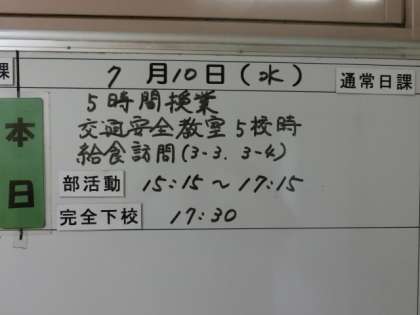 課
7月10日(水)
通常日課
本日
5時間授業
交通安全教室5校時
給食訪問(3-3. 3-4)
部活動 15:15~17:15
完全下校 17:30